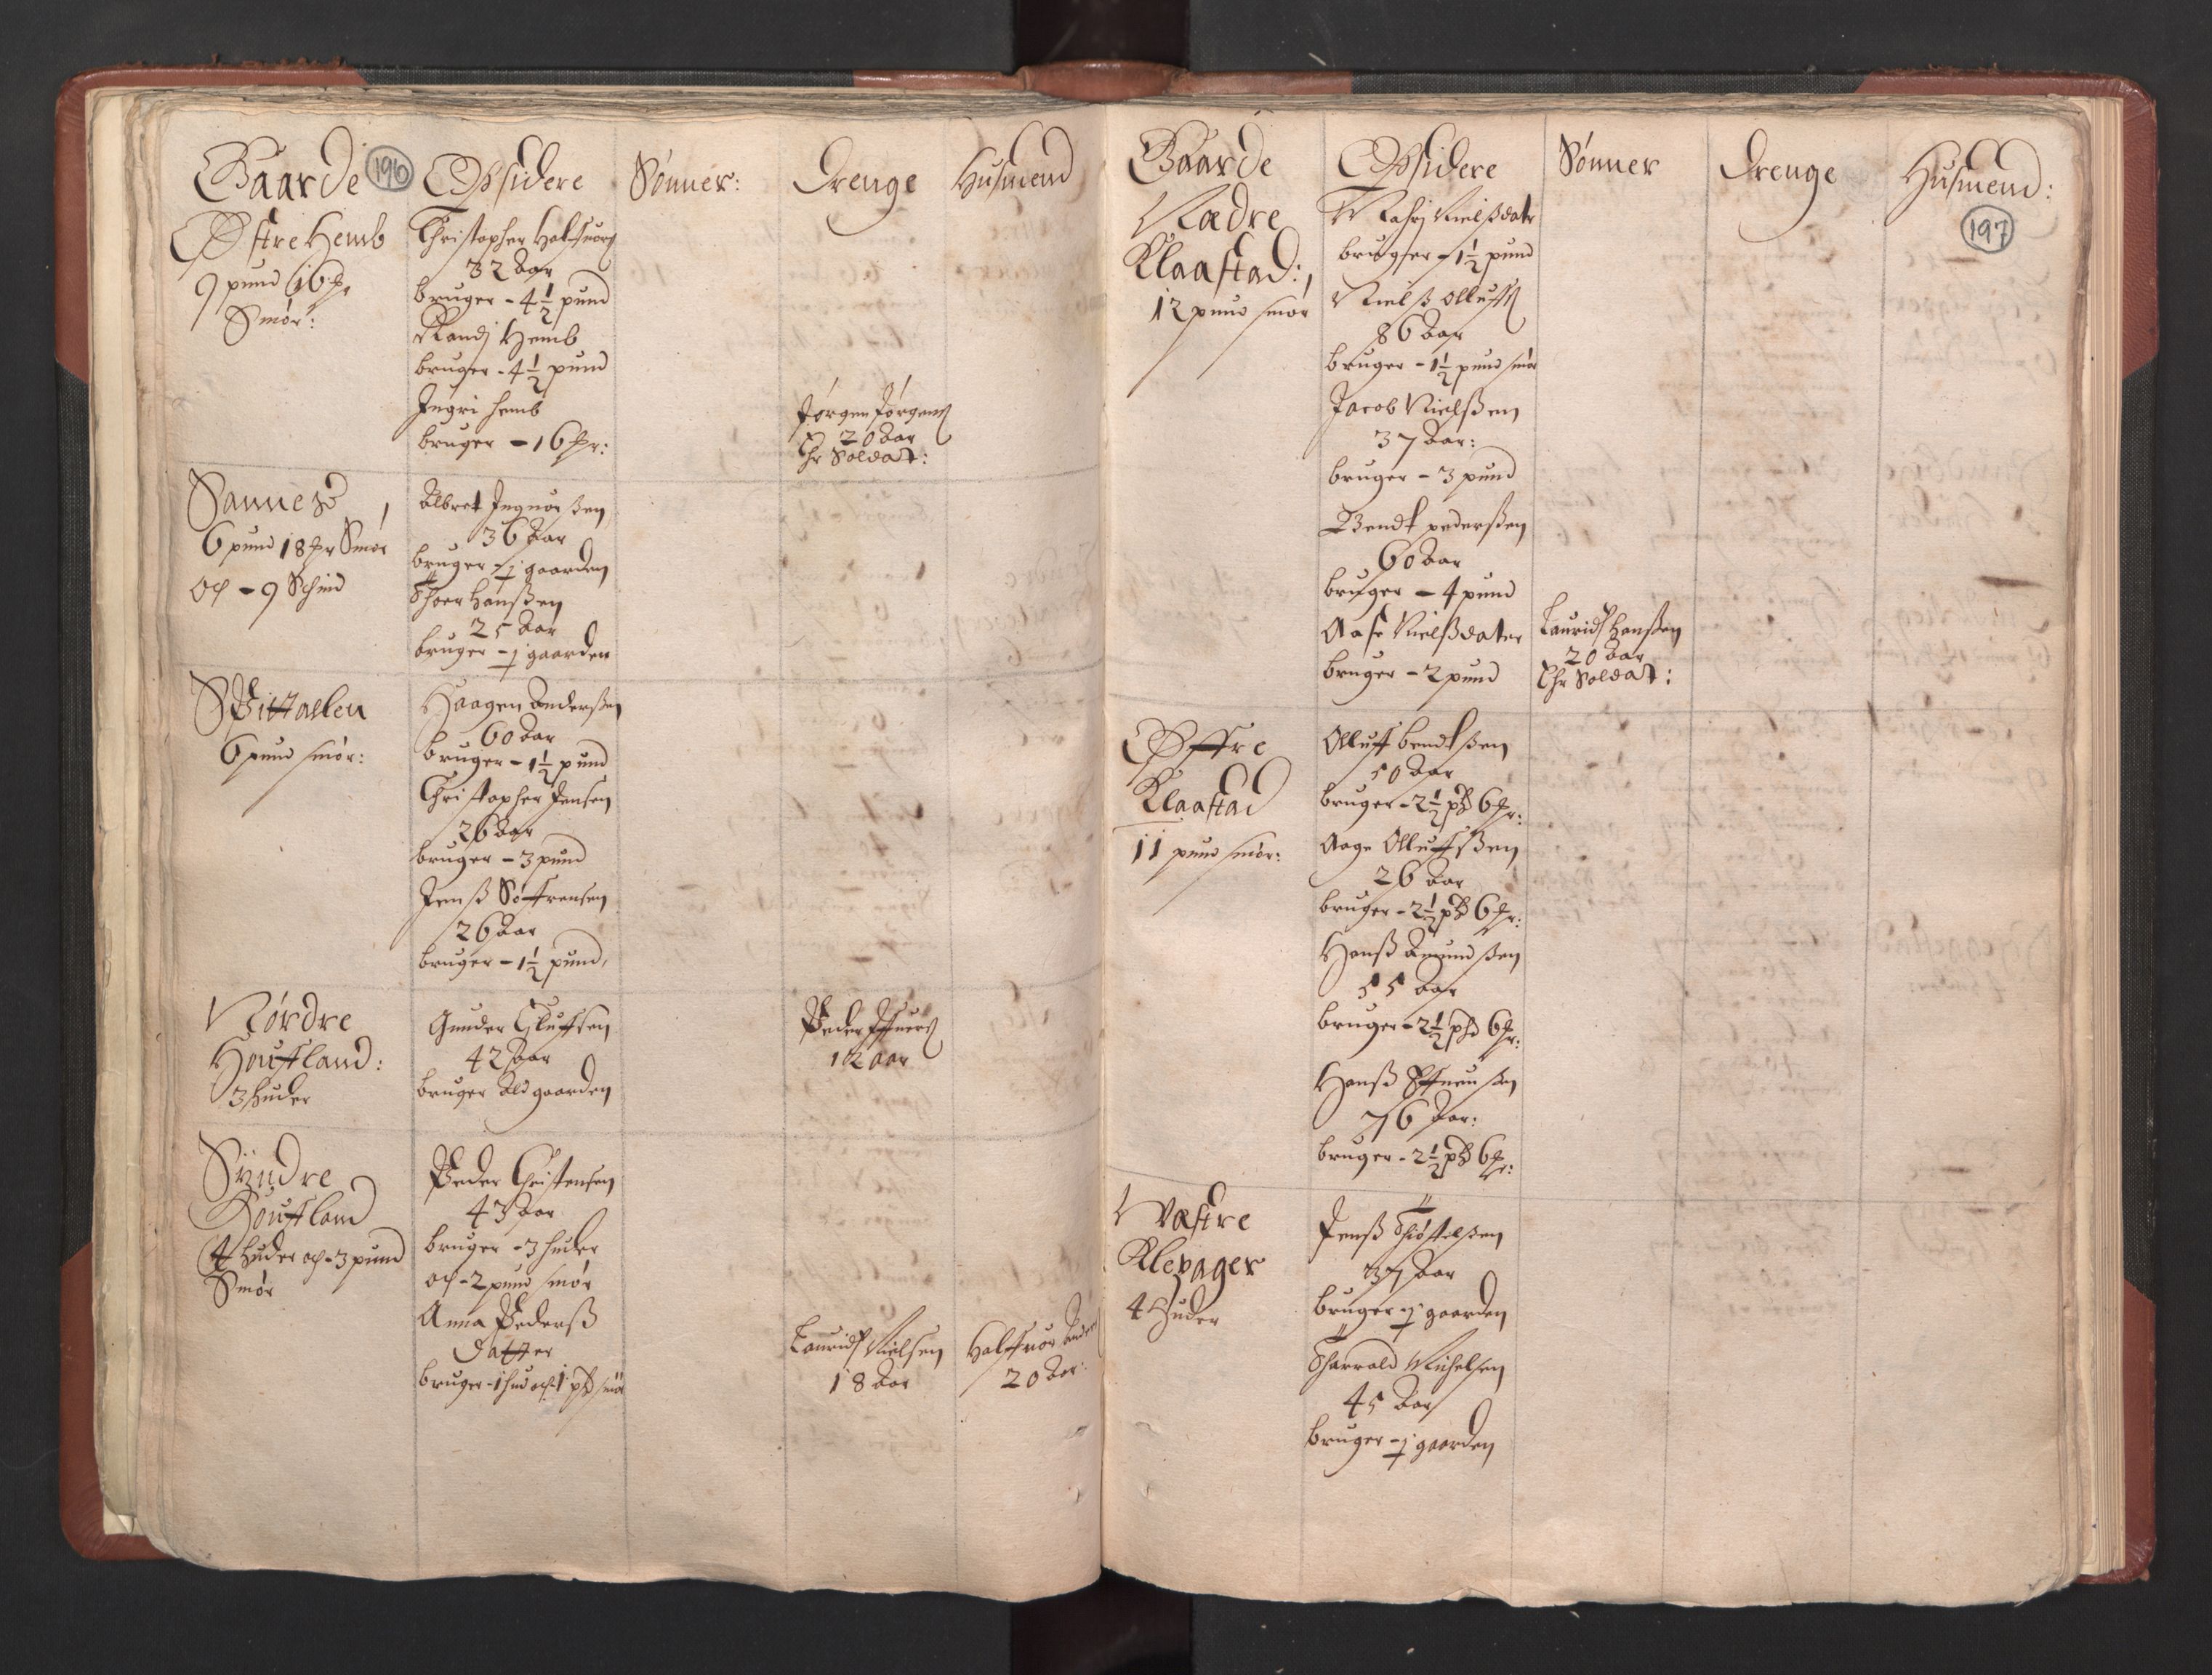 Gaarde 196 Opsidere Sønner: Drenge Husmend
Østre Hemb
9 pund 16 mr
Smør:
Christopher Halfuors
32 Aar
bruger - 4 1/2 pund
Randj Hemb
bruger - 4 1/2 pund
Ingri hemb
bruger - 16 mr:
Jørgen Jørgens
20 Aar
Er Soldat:
Sannes
6 pund 18 mr Smør
och - 9 Schind
Albret Inguorßen
36 Aar
bruger - 1/2 gaarden
Thoer Hanßen
25 Aar
bruger - 1/2 gaarden
Spittallen
6 pund smør:
Haagen Anderßen
60 Aar
bruger - 1 1/2 pund
Christopher Jensen
26 Aar
bruger - 3 pund
Jenß Søffrensen
26 Aar
bruger - 1 1/2 pund,
Nørdre
Houfland:
3 huder
Gunder Elluffsen
42 Aar
bruger Ald gaarden
Peder Iffuers
12 aar
Syndre
Houffland
4 huder och - 3 pund
Smør
Peder Christensen
43 Aar
bruger - 3 huder
och - 2 pund smør
Anna Pederß
Datter
bruger - 1 hud och 1 pd smør
Lauridz Nielsen
18 Aar
Halffuor Anders
20 Aar:
Gaarde Opsidere Sønner Drenge Husmend:
197
Nædre
Klaastad:
12 pund smør
Mahrj Nielßdatr
bruger - 1 1/2 pund
Nielß Olluffs
86 Aar
bruger - 1 1/2 pund smør
Jacob Nielßen
37 Aar:
bruger - 3 pund
Bendt pederßen
60 Aar
bruger - 4 pund
Aase Nielßdater
bruger - 2 pund
Lauridz Hanßen
20 Aar
Er Soldat:
Øffre
Klaastad
11 pund smør:
Olluff bendtßen
50 Aar
bruger - 2 1/2 pd 6 mr:
Aage Olluffßen
26 Aar
bruger - 2 1/2 pd 6 mr:
Hanß Amundßen
55 Aar
bruger - 2 1/2 pd 6 mr:
Hanß
76 Aar:
bruger - 2 1/2 pd 6 mr:
Wæstre
Klevager
4 Huder
Jenß
37 Aar
bruger - 1/2 gaarden
Tharrald Michelsen
45 Aar
bruger - 1/2 gaarden